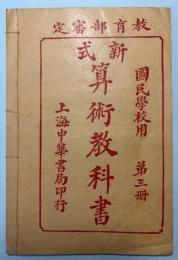 教育部審定
新式
算術教科書
國民學校用 第三册
上海中華書局印行